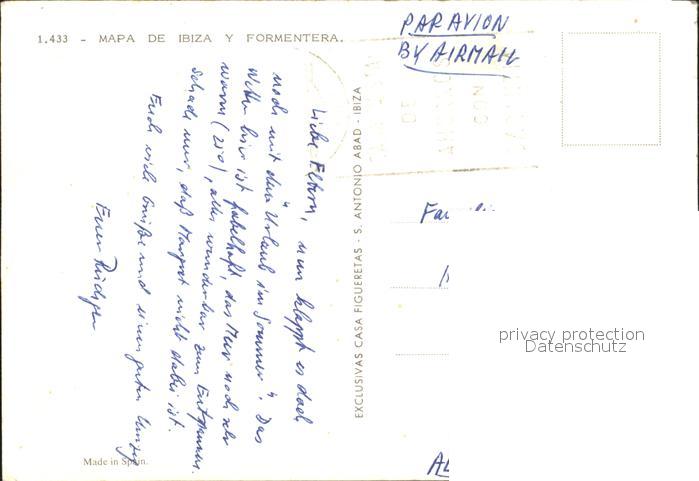 1.433 - MAPA DE IBIZA Y FORMENTERA.
PAR AVION
BY AIRMAIL
Liebe Eltern, nun klappt es doch
noch mit dem "Urlaub im Sommer". Das
Wetter hier ist fabelhaft, das Meer noch sehr
warm (23°), alles wunderbar zum Entspannen.
Schade nur, daß Margot nicht dabei ist.
Euch viele Grüße und einen guten
Euer Rüdiger
EXCLUSIVAS CASA FIGUERETAS - S. ANTONIO ABAD - IBIZA
Made in Spain.
privacy protection
Datenschutz